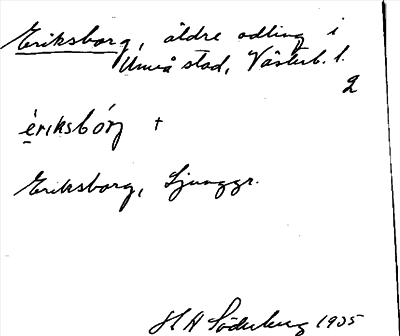 Eriksborg, äldre odling i
Umeå stad, Västerb. l.
2
ériksbórj +
Eriksborg, Ljunggr.
H A Söderberg 1935